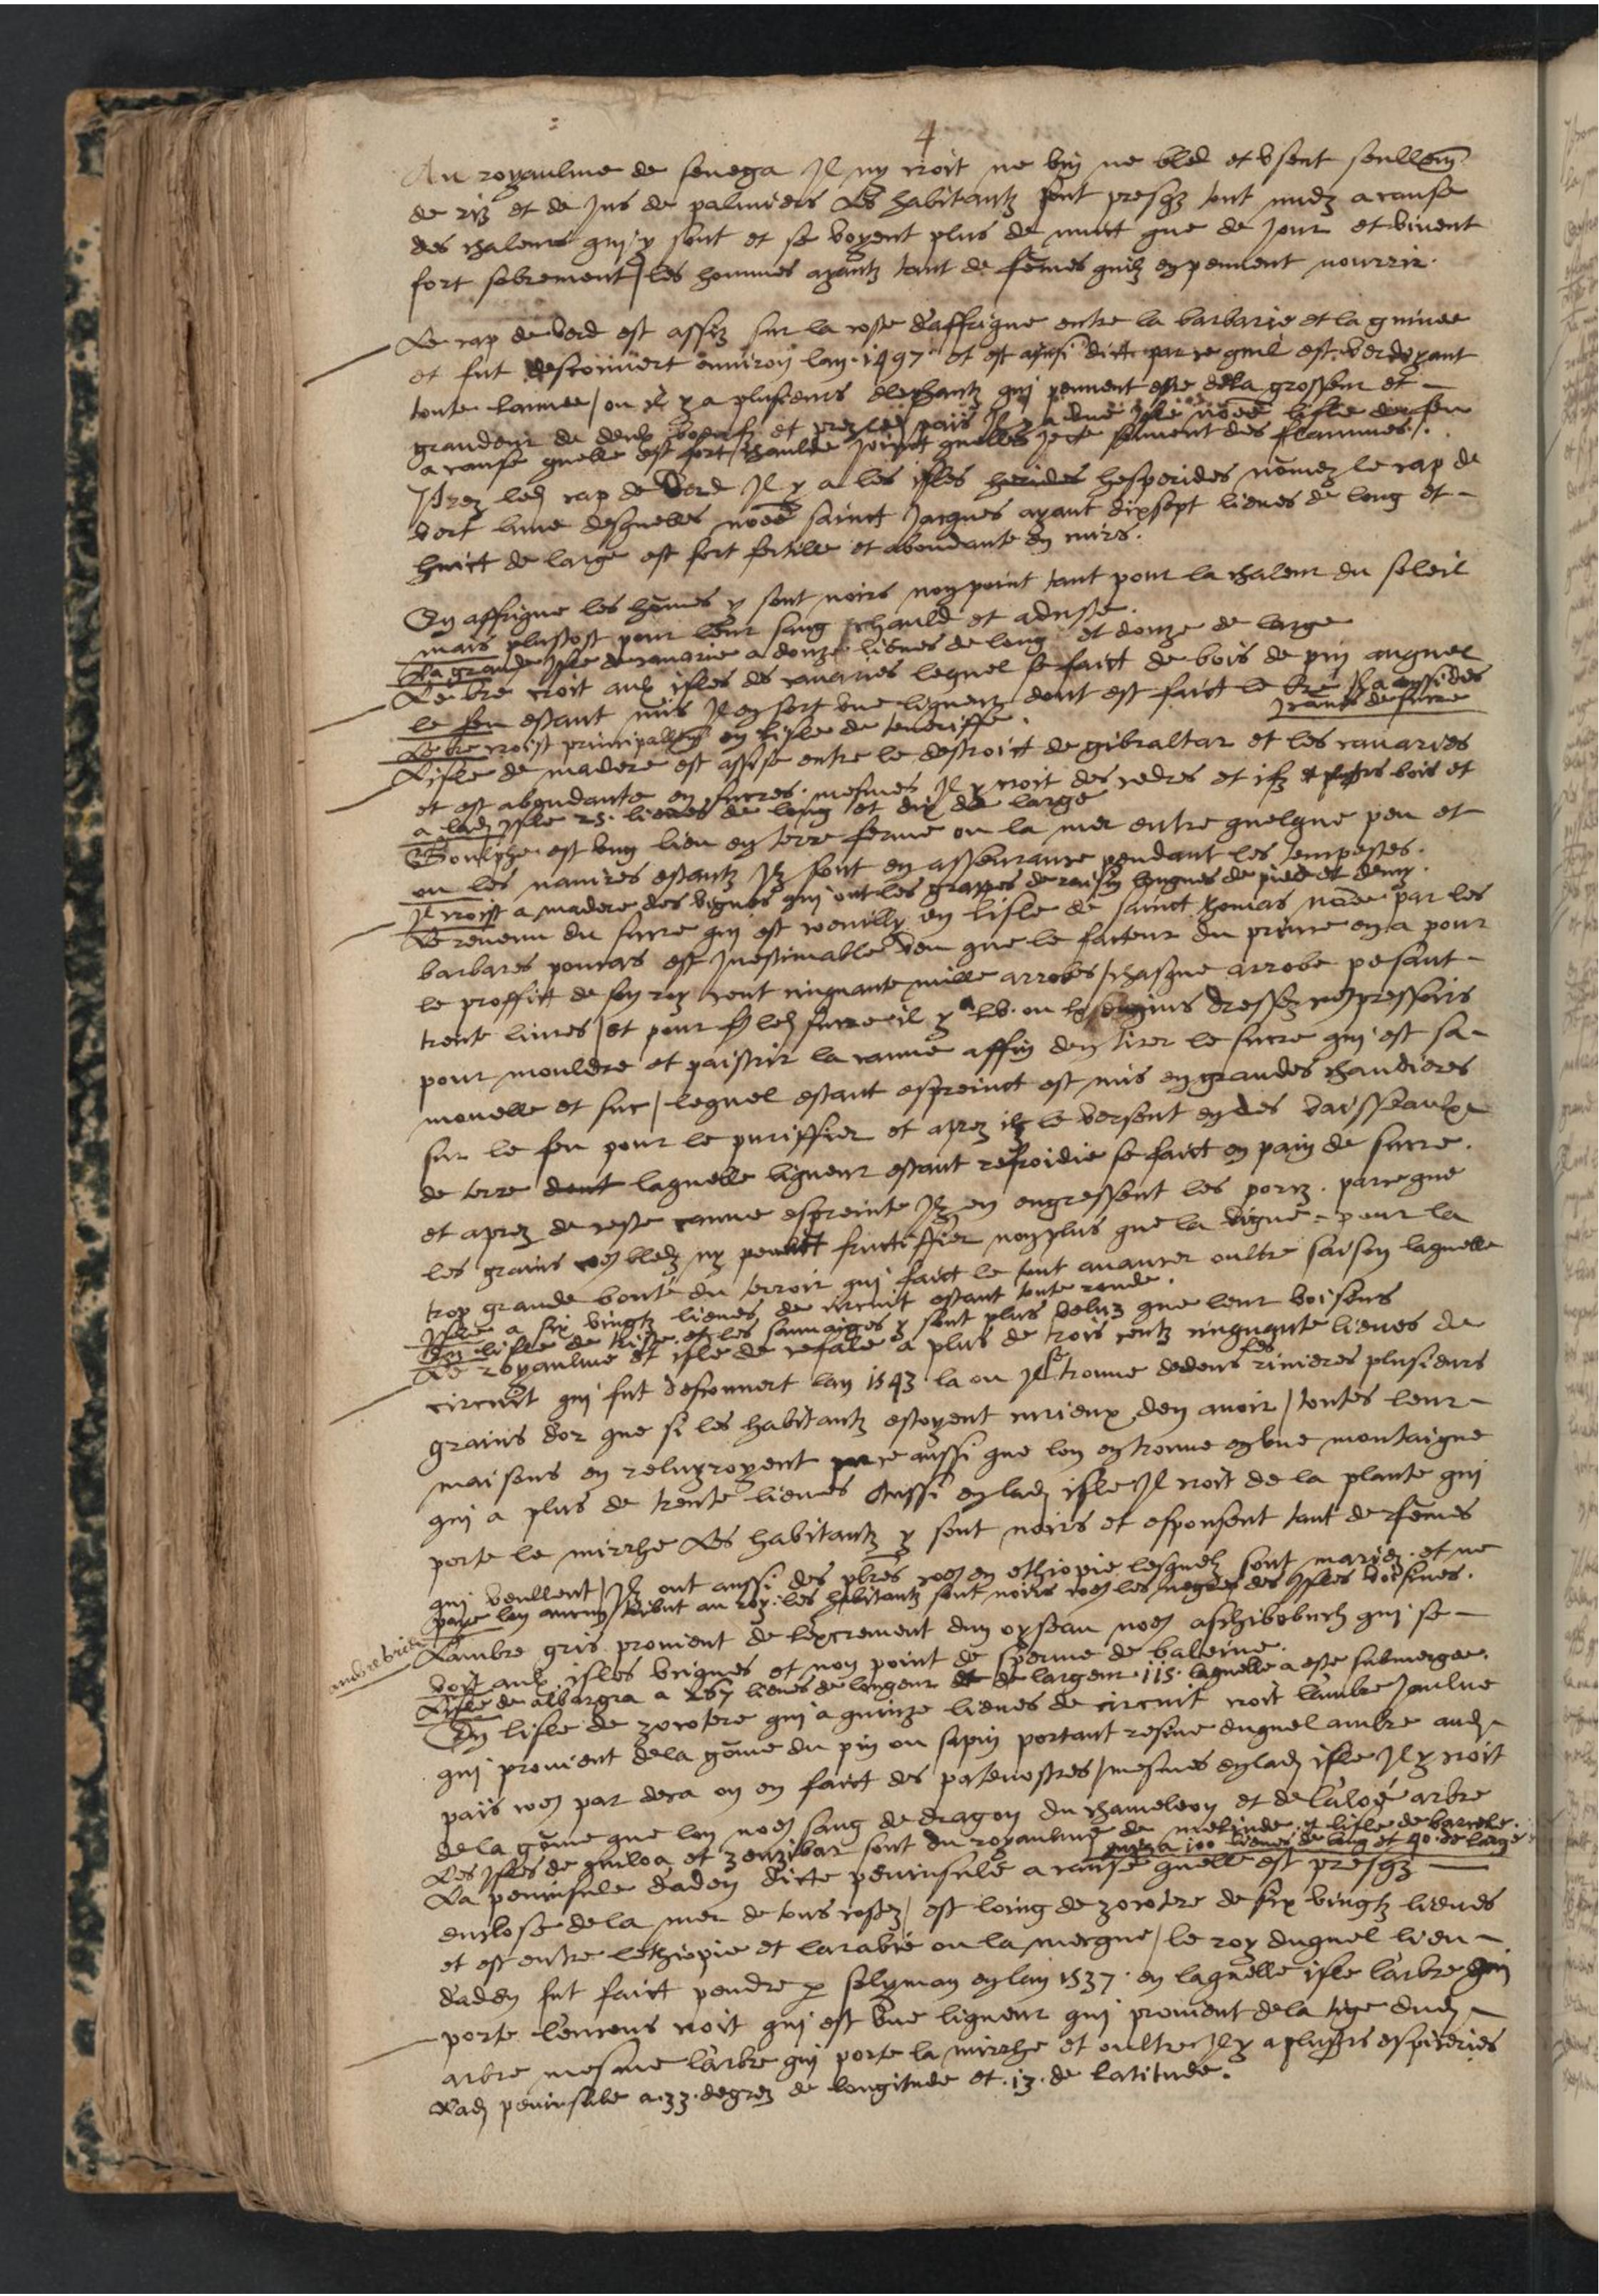 4
Au royaulme de senega Il ny croit ne vin ne bled et usent seullemt
de riz et de jus de palmiers Les habitantz sont presqz tout nudz a cause
des chaleurs qui y sont et se voyent plus de nuict que de jour et vivent
fort sobrement / les hommes ayantz tant de fēmes quilz en peuvent nourrir.
Le cap de verd est assiz sur la coste d'affrique entre la barbarie et la guinee
et fut descouvert environ lan .1497. et est ainsi dict par ce quil est verdoyant
toute lannee / ou il y a plusieurs elephantz qui peuvent estre dela grosseur et -
grandeur de deux boeufz et prez led pais Il y a une Isle nōēe lisle du feu
a cause quelle est fort chaulde joinct quelle jecte souvent des flammes /.
Prez led cap de verd Il y a les isles hesperides nōmez le cap de
vert lune desquelles nōēe sainct Jacques ayant dixsept lieues de long et -
huict de large est fort fertille et abondante en cuirs.
En affrique les hōmes y sont noirs non point tant pour la chaleur du soleil
mais plustost pour leur sang chauld et aduste.
La grande Isle de canarie a douze lieues de long et douze de large
Le bre croit aux isles des canaries lequel se faict de bois de pin auquel
le feu estant mis Il en sort une liqueur dont est faict le bre Il y a aussi des
cannes de sucre
Le bre croist principallemt en lisle de teneriffe.
Lisle de madere est assise entre le destroict de gibraltar et les canaries
et est abondante en sucres. mesmes Il y croit des cedres et ifz et plusrs bois et
a lad Isle 25. lieues de long et dix de large
Goulphe est ung lieu en terre ferme ou la mer entre quelque peu et
ou les navires estantz Ilz sont en asseurance pendant les tempestes.
Il croist a madere des vignes qui ont les grappes de raisin longues de pied et demy.
Le revenu du sucre qui est cueilly en lisle de sainct thomas nōēe par les
barbares poncas est Inestimable veu que le facteur du prince en a pour
le proffict de son roy cent cinquante mille arrobes / chasque arrobe pesant -
trente livres / et pour led sucre il y a ou engins dressez coē pressoirs
pour mouldre et paistrir la canne affin den tirer le sucre qui est sa -
mouelle et suc / lequel estant espreinct est mis en grandes chaudieres
sur le feu pour le puriffier et aprez ilz le versent en des vaisseaulx
de terre dont laquelle liqueur estant refroidie se faict en pain de sucre.
et aprez de ceste canne espreinte Ilz en engressent les porcz. parceque
les grains coē bledz ny peuvent fructiffier non plus que la vigne - pour la
trop grande bonté du terroir qui faict le tout avancer oultre saison laquelle
Isle a six vingtz lieues de circuit estant toute ronde.
En lisle de et les sauvaiges y sont plus veluz que leur voisins
Le royaulme et isle de cefale a plus de trois centz cinquante lieues de
circuit qui fut descouvert lan 1543 la ou Il se trouve dedens les rivieres plusieurs
grains dor que si les habitantz estoyent curieux den avoir / toutes leur -
maisons en reluyroyent parce aussi que lon en trouve en une montaigne
qui a plus de trente lieues Aussi en lad isle Il croit de la plante qui
porte le mirrhe Les habitantz y sont noirs et espousent tant de fēmes
qui veullent / Ilz ont aussi des pbres coē en ethiopie lesquelz sont mariez. et ne
paye lon aucun tribut au roy. les habitantz sont noirs coē les negres des Isles voisines.
ambre gris
Lambre gris provient de lexcrement dun oyseau noē aschibobuch qui se -
voit aux isles et non point de sperme de baleine.
Lisle de albargra a 267 lieues de longeur et de largeur .115. laquelle a este submergee.
En lisle de zocotere qui a quinze lieues de circuit croit lambre jaulne
qui provient dela gōme du pin ou sapin portant resine duquel ambre aud -
pais coē par deca on en faict des patenostres / mesmes en lad isle Il y croit
dela gōme que lon noē sang de dragon du chameleon et de laloé arbre
Les Isles de quiloa et zenzibar sont du royaulme de melinde. et lisle de
qui a 100 lieues de long et 40. de large
La peninsule daden dicte peninsule a cause quelle est presqz -
enclose dela mer de tous costez / est loing de zocotere de six vingtz lieues
et est entre lethiopie et larabie ou la mecque / le roy duquel lieu -
daden fut faict pendre p solyman en lan 1537. en laquelle isle larbre qui
porte lencens croit qui est une liqueur qui provient dela tige dud -
arbre mesme larbre qui porte la mirrhe et oultre Il y a plusrs espiceries
Lad peninsule a .33. degrez de longitude et .13. de latitude.